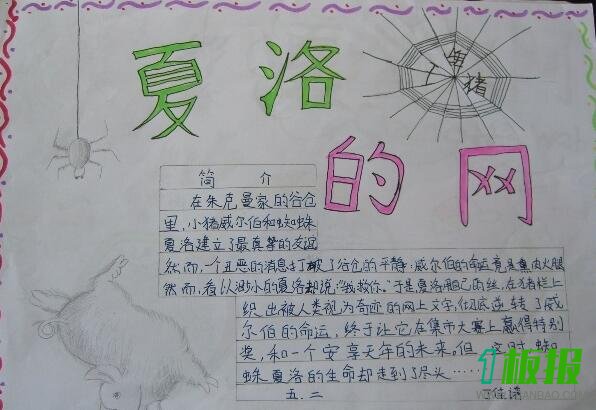 夏洛
猪
的网
简介
在朱克曼家的谷仓
里,小猪威尔伯和蜘蛛
夏洛建立了最真挚的友谊
然而,一个丑恶的消息打破了谷仓的平静:威尔伯的命运竟是熏肉火腿
然而,看以渺小的夏洛却说,"我救你。"于是夏洛用自己的丝,在猪栏上
织出被人类视为奇迹的网上文字,彻底逆转了威
尔伯的命运,终于让它在集市大赛上赢得特别
奖,和一个安享天年的未来。但,这时,蜘
蛛夏洛的生命却走到了尽头……
五.二
板报